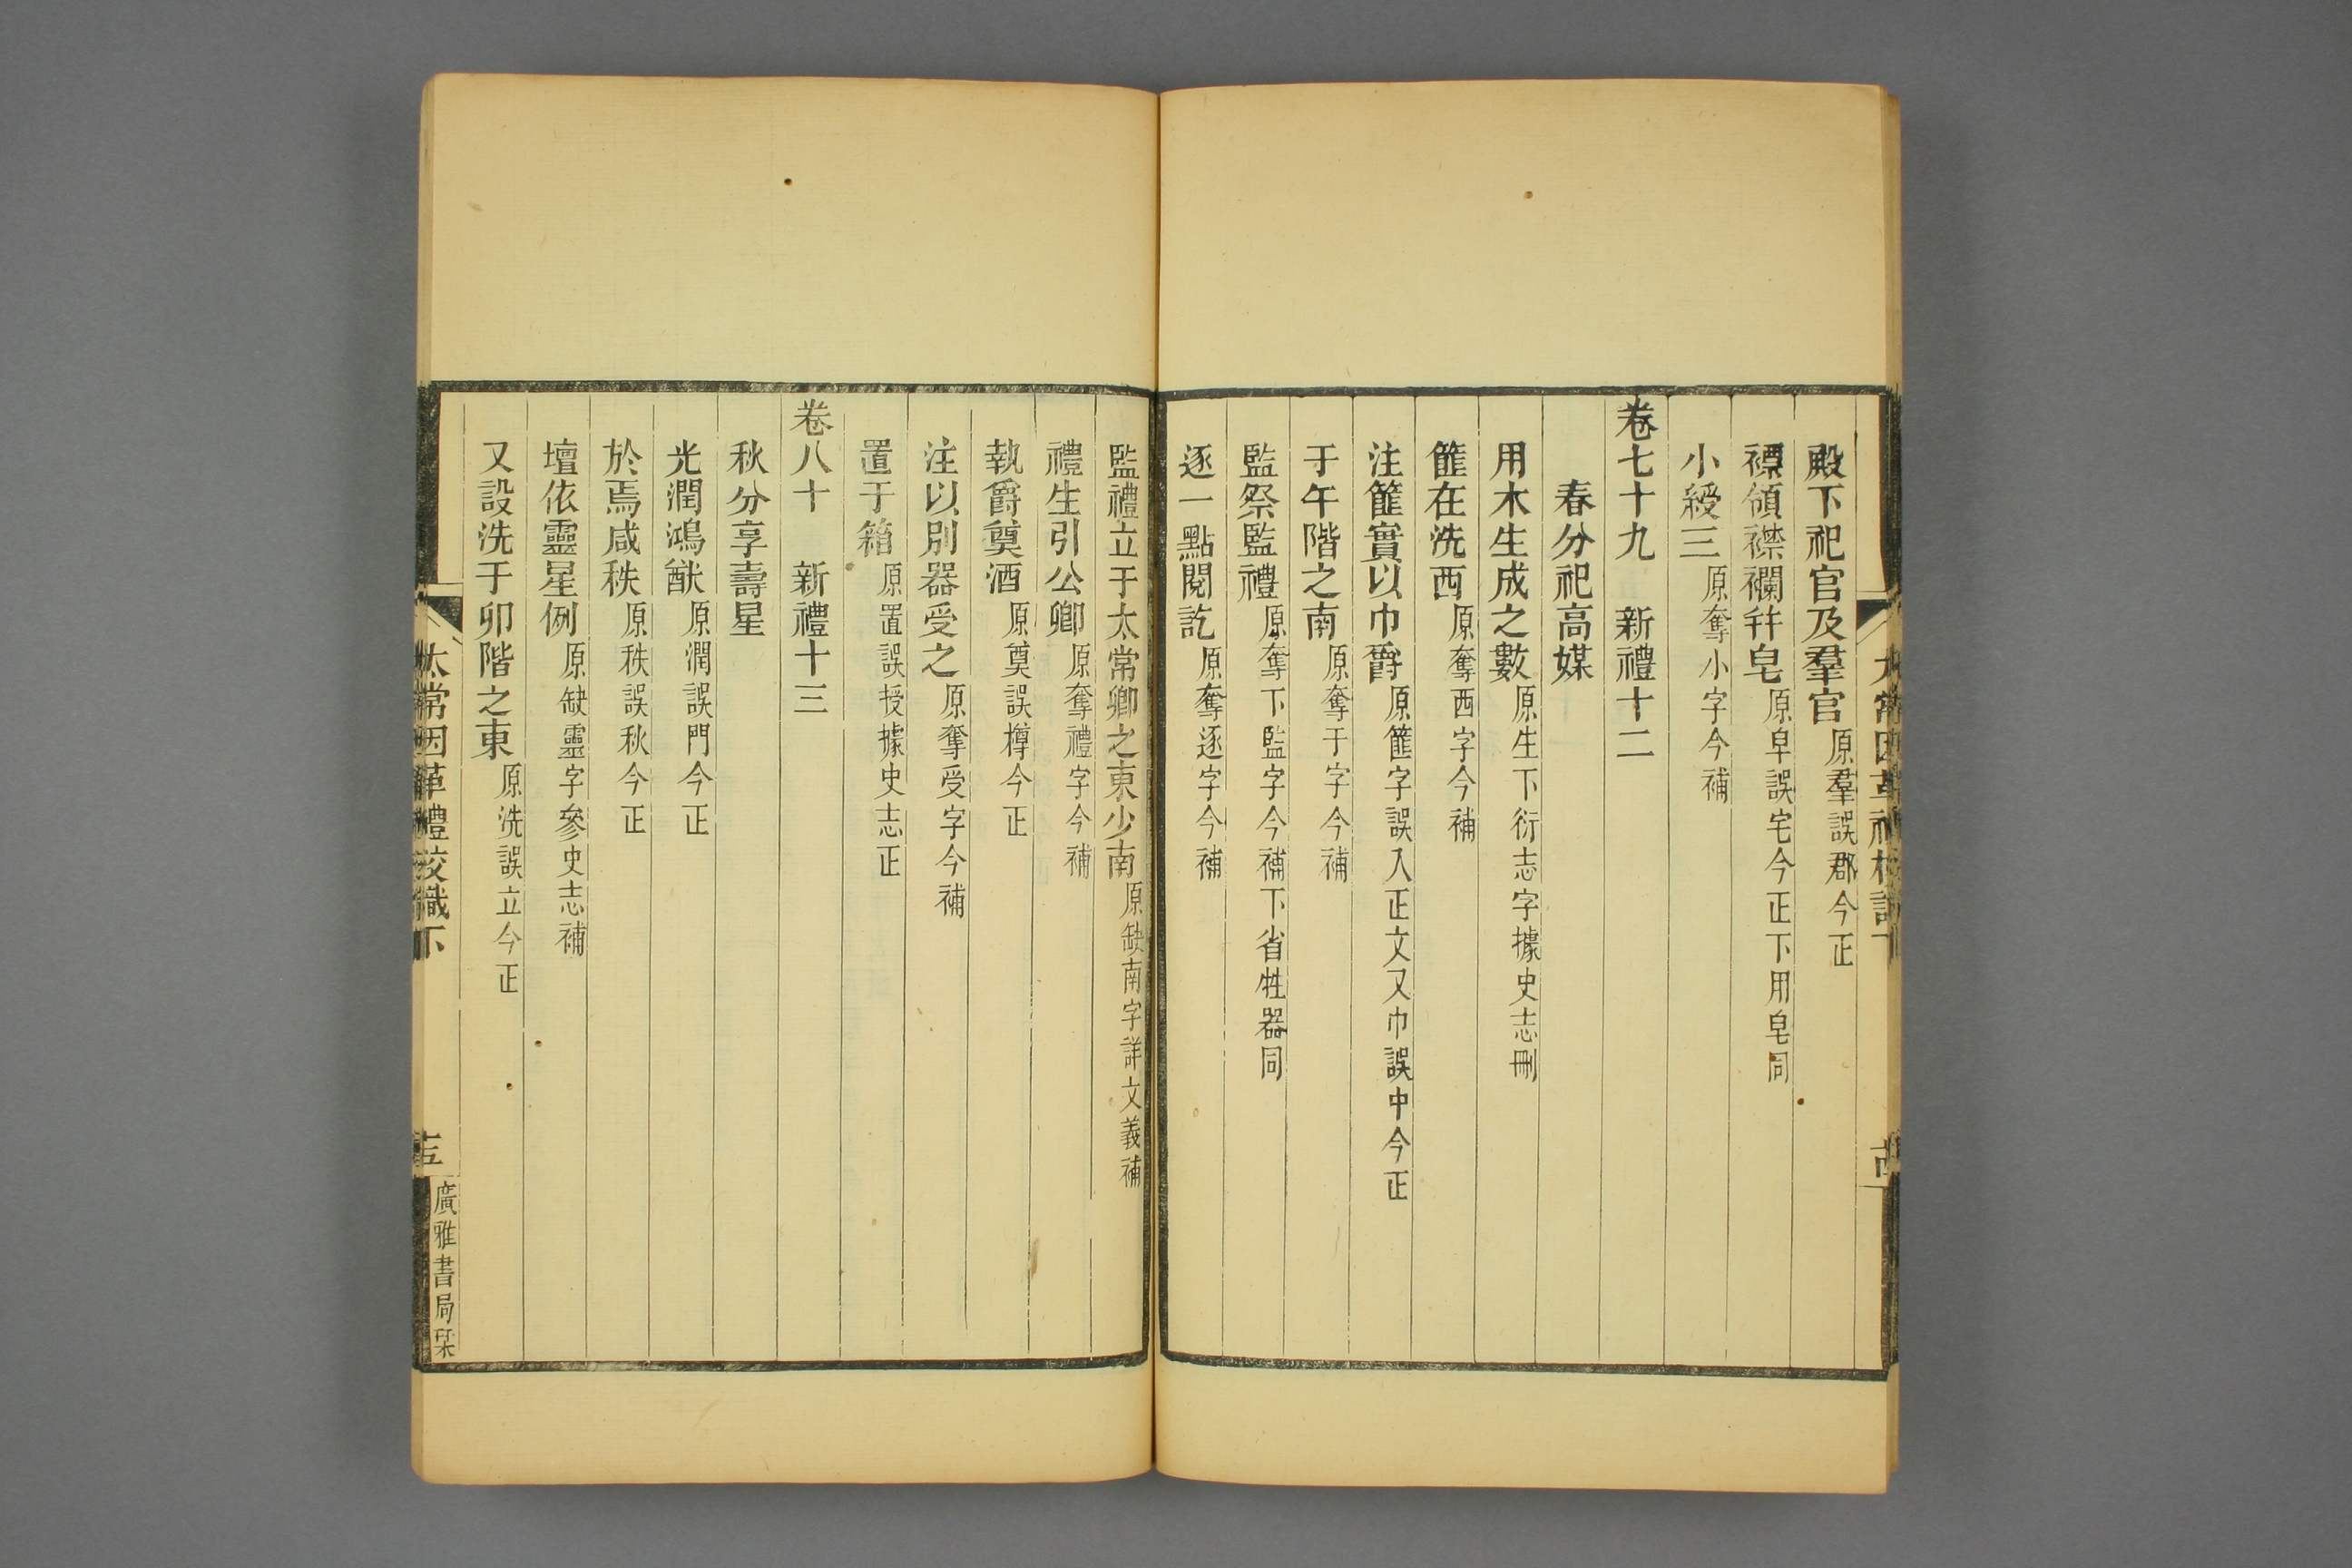 殿下祀官及羣官原羣誤郡今正
褾領襟襴䘰皂原皁誤宅今正下用皂同
小綬三原奪小字今補
卷七十九 新禮十二
春分祀高媒
用木生成之數原生下衍志字據史志刪
篚在洗西原奪西字今補
注篚實以巾爵原篚字誤入正文又巾誤中今正
于午階之南原奪于字今補
監祭監禮原奪下監字今補下省牲器同
逐一點閱訖原奪逐字今補
監禮立于太常卿之東少南原缺南字詳文義補
禮生引公卿原奪禮字今補
執爵奠酒原奠誤樽今正
注以別器受之原奪受字今補
置于箱原置誤授據史志正
卷八十 新禮十三
秋分享壽星
光潤鴻猷原潤誤門今正
於焉咸秩原秩誤秋今正
壇依靈星例原缺靈字參史志補
又設洗于卯階之東原洗誤立今正
太常因革禮校識下
廣雅書局栞